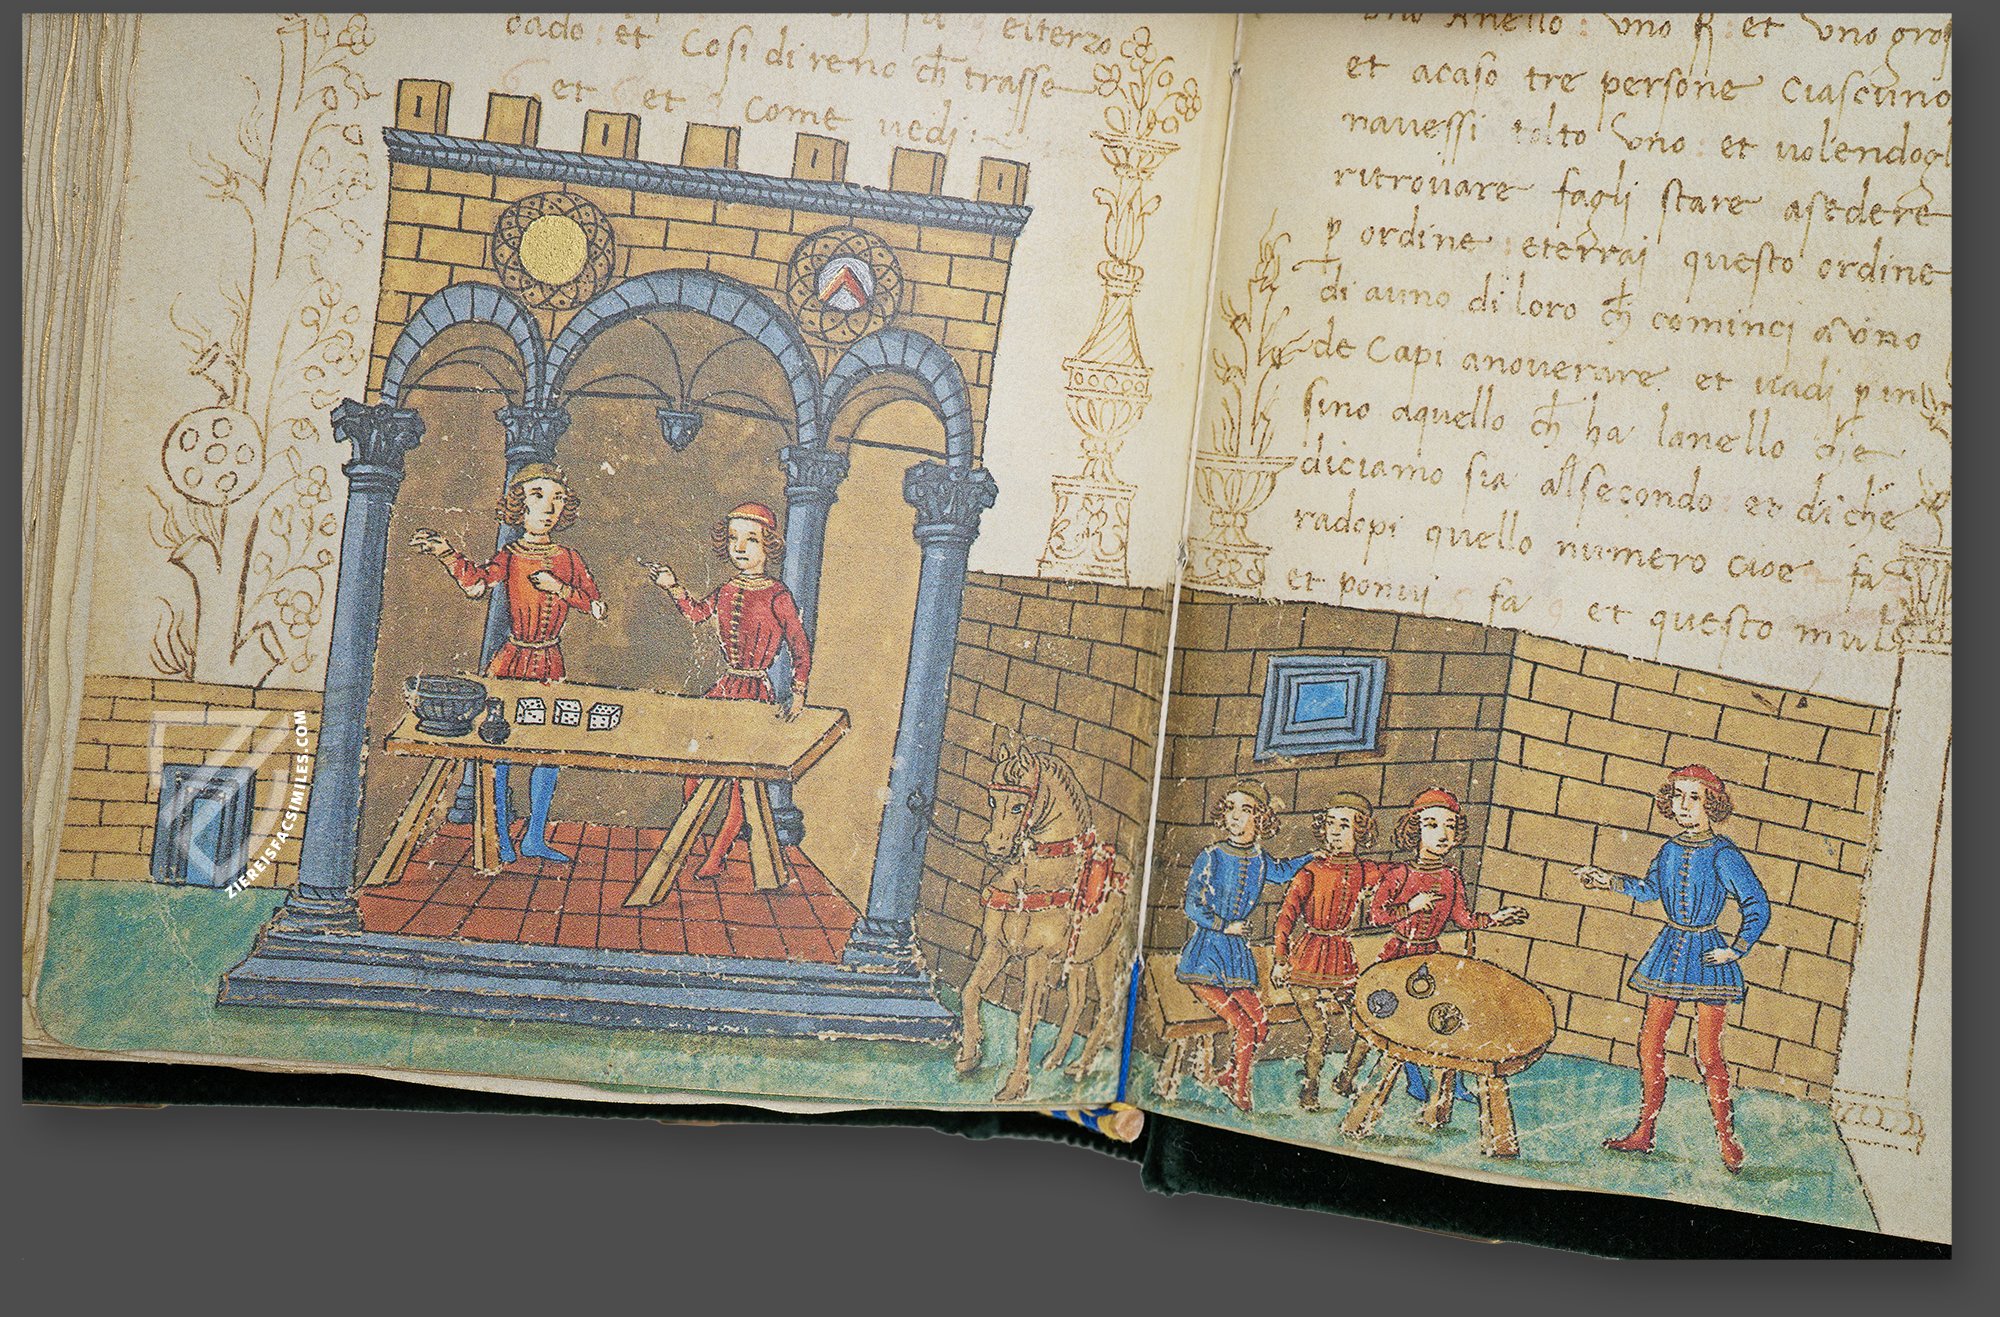 dado : et Cosi di reno ch̄ trasse
et et Come vedi :~
elterzo
Uno Anello : Uno R : et Uno gros
et acaso tre persone Ciascuno
navessi tolto Uno : et volendogl
ritrovare fagli stare asedere
p ordine : eterrai questo ordine
di auno di loro ch̄ cominci a Uno
de Capi anoverare et vadi p in
sino aquello ch̄ ha lanello che
diciamo sia alsecondo et di che
radopi quello numero cioe fa
et ponvi 5 fa 9 et questo mul
ZIEREISFACSIMILES.COM